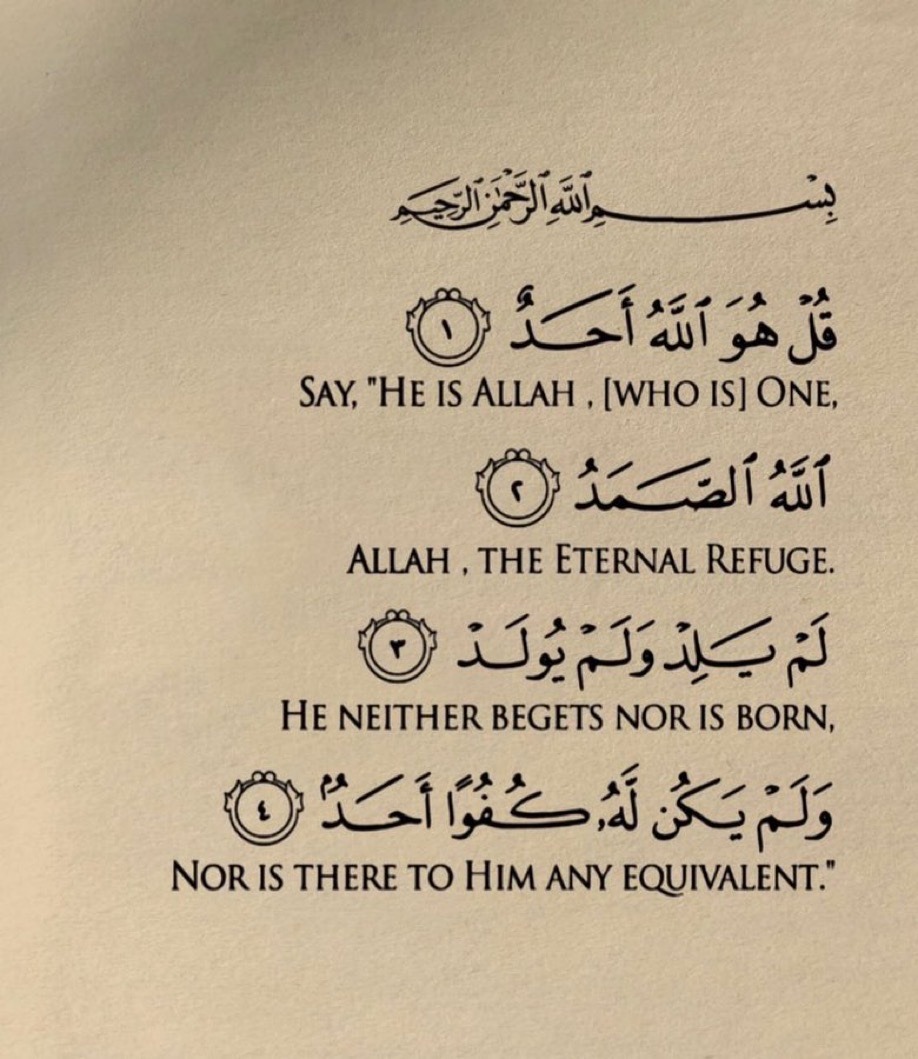 بِسْمِ ٱللَّهِ ٱلرَّحْمَٰنِ ٱلرَّحِيمِ
قُلْ هُوَ ٱللَّهُ أَحَدٌ ١
SAY, "HE IS ALLAH , [WHO IS] ONE,
ٱللَّهُ ٱلصَّمَدُ ٢
ALLAH , THE ETERNAL REFUGE.
لَمْ يَلِدْ وَلَمْ يُولَدْ ٣
HE NEITHER BEGETS NOR IS BORN,
وَلَمْ يَكُن لَّهُۥ كُفُوًا أَحَدٌۢ ٤
NOR IS THERE TO HIM ANY EQUIVALENT."